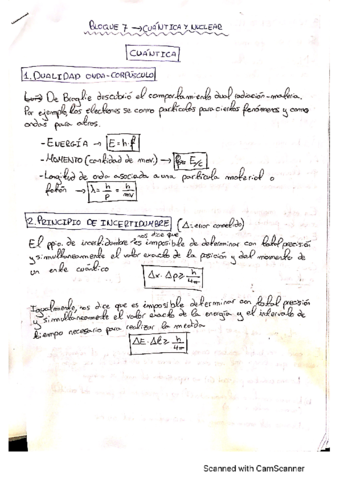 BLOQUE 7 → CUÁNTICA Y NUCLEAR
CUÁNTICA
1. DUALIDAD ONDA-CORPÚSCULO
De Broglie descubrió el comportamiento dual radiación-materia.
Por ejemplo, los electrones se como partículas para ciertos fenómenos y como
ondas para otros.
- ENERGÍA → E = h·f
- MOMENTO (cantidad de mov.) → p = E/c
- Longitud de onda asociada a una partícula material o
fotón → λ = h/p = h/mv
2. PRINCIPIO DE INCERTIDUMBRE (Δ = error cometido)
nos dice que
El ppio. de incertidumbre es imposible de determinar con total precisión
y simultáneamente el valor exacto de la posición y del momento de
un ente cuántico
Δx · Δp ≥ h/4π
Igualmente, nos dice que es imposible determinar con total precisión
y simultáneamente el valor exacto de la energía y el intervalo de
tiempo necesario para realizar la medida
ΔE · Δt ≥ h/4π
Scanned with CamScanner